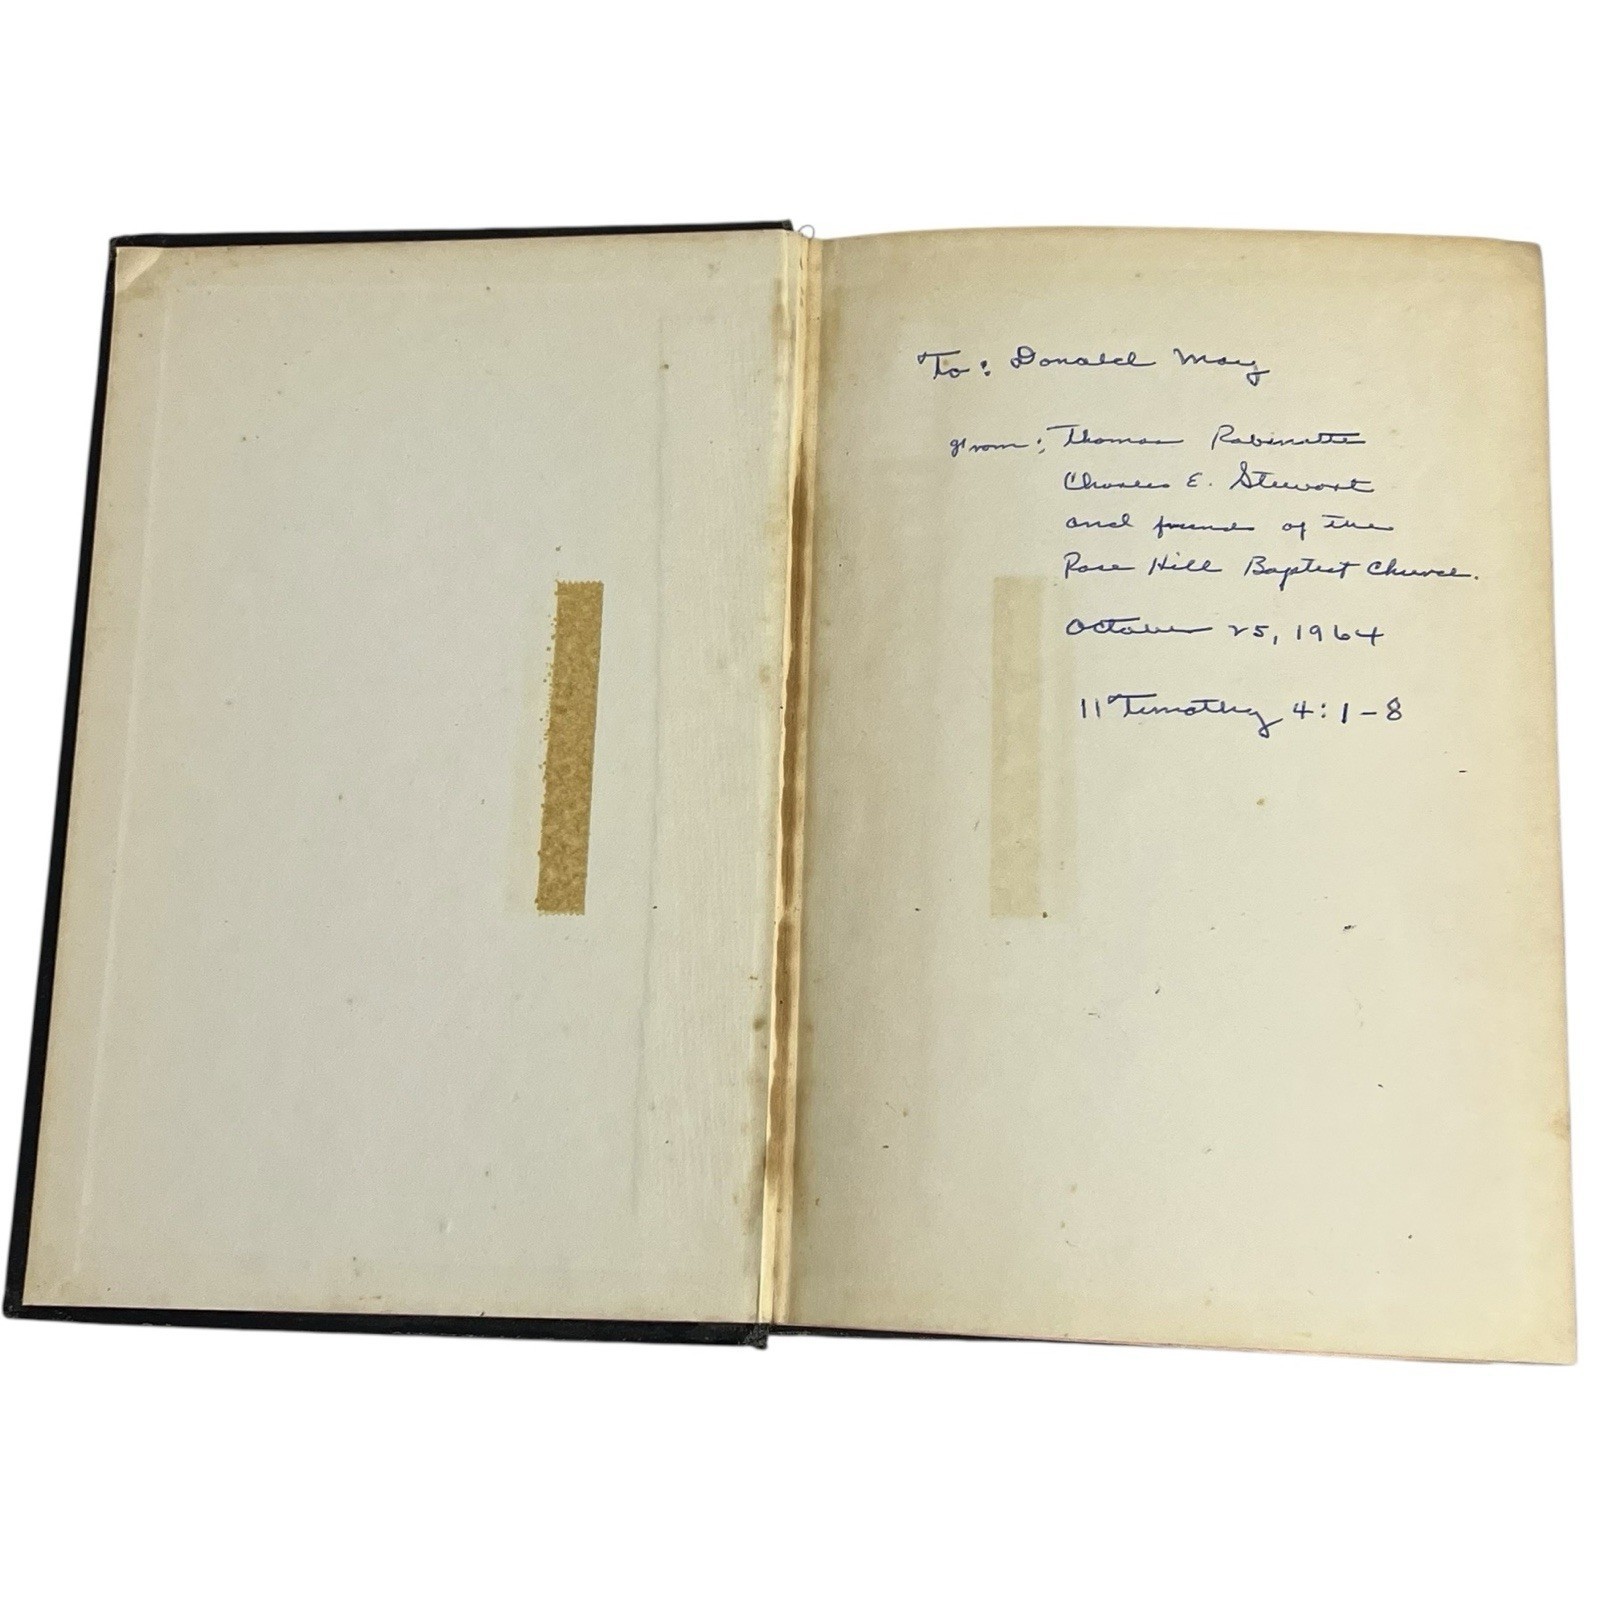 To: Donald May
from: Thomas Robinette
Charles E. Stewart
and friends of the
Rose Hill Baptist Church.
October 25, 1964
11 Timothy 4:1-8